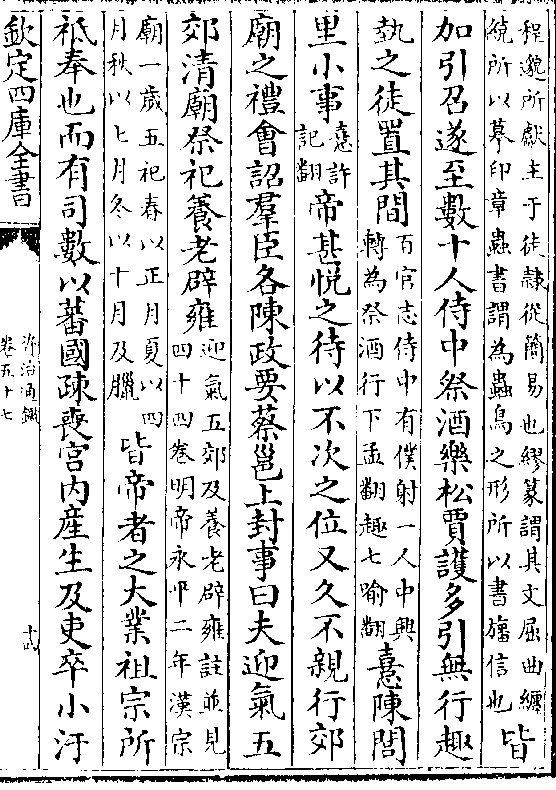 程邈所獻主于徒隸從簡易也繆篆謂其文屈曲纏
綩所以摹印章蟲書謂為蟲鳥之形所以書旛信也
皆
加引召遂至數十人侍中祭酒樂松賈護多引無行趣
埶之徒置其間
百官志侍中有僕射一人中興
轉為祭酒行下孟翻趣七喻翻
憙陳閭
里小事
憙許
記翻
帝甚悅之待以不次之位又久不親行郊
廟之禮會詔羣臣各陳政要蔡邕上封事曰夫迎氣五
郊清廟祭祀養老辟雍
迎氣五郊及養老辟雍註並見
四十四卷明帝永平二年漢宗
廟一歲五祀春以正月夏以四
月秋以七月冬以十月及臘
皆帝者之大業祖宗所
祗奉也而有司數以蕃國疎喪宮内産生及吏卒小汙
欽定四庫全書
資治通鑑
卷五十七
十九